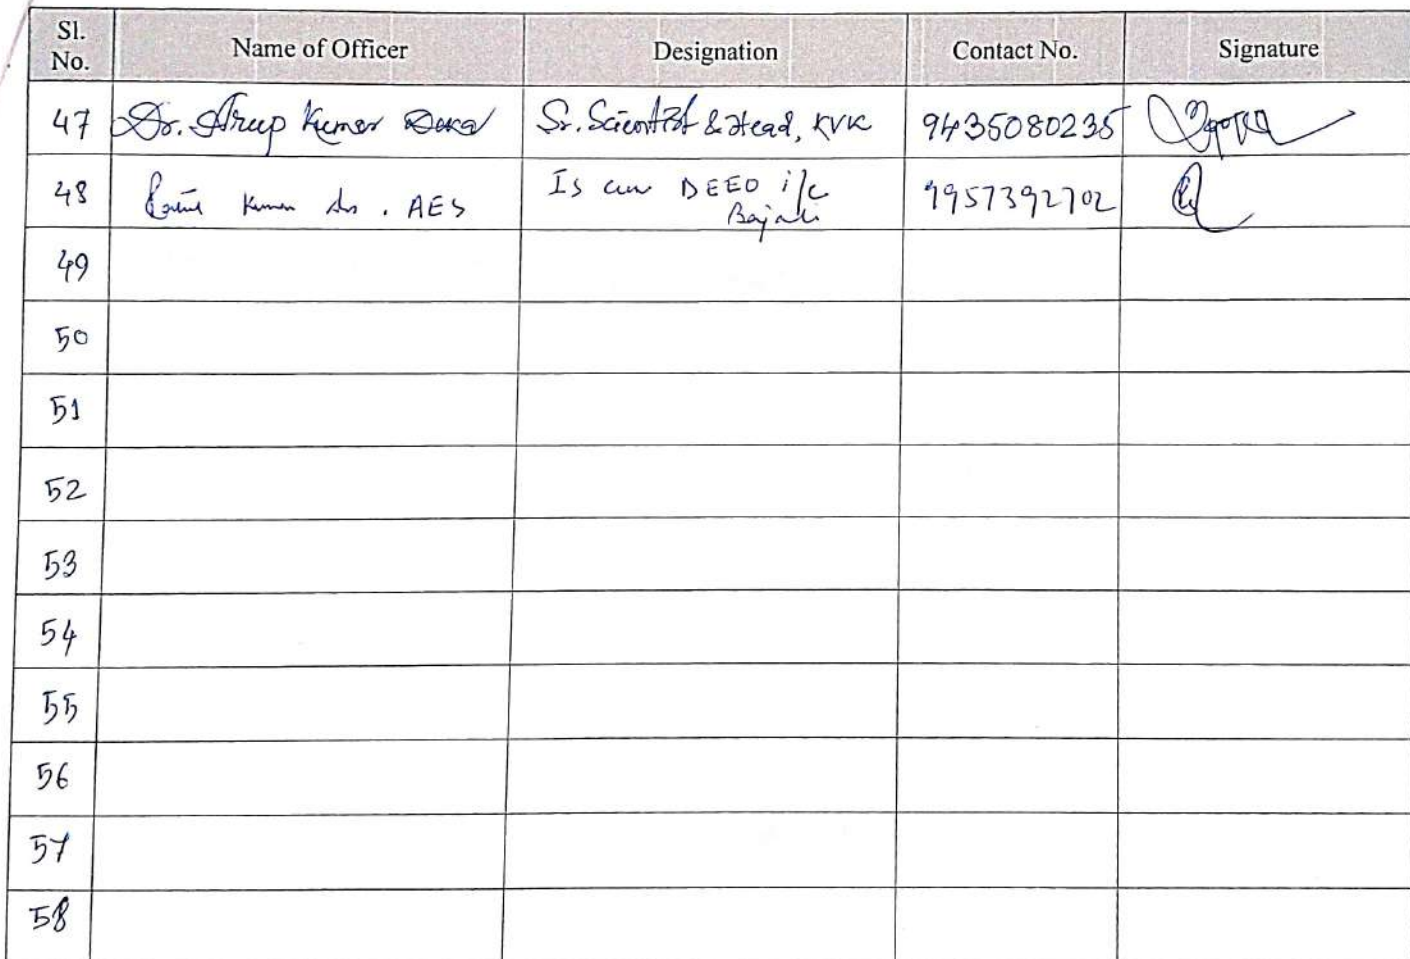 Sl. No. Name of Officer Designation Contact No. Signature
47 Dr. Arup Kumar Deka Sr. Scientist & Head, KVK 9435080235
48 Kumar . AES Is cum DEEO i/c
Bajali 9957392702
49
50
51
52
53
54
55
56
57
58